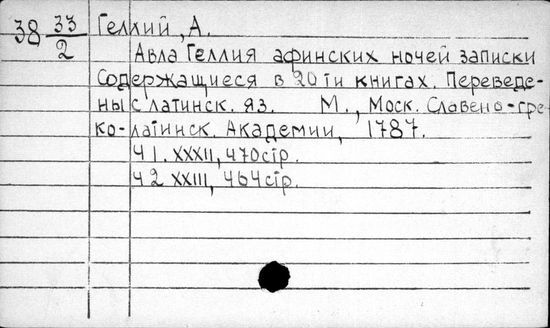 38 33/2 Геллий, А.
Авла Геллия афинских ночей записки
содержащиеся в 20ти книгах. Переведе-
ны с латинск. яз. М., Моск. Славено-гре-
ко-латинск. Академии, 1787.
Ч 1. XXXII, 470стр.
Ч 2 XXIII, 464стр.